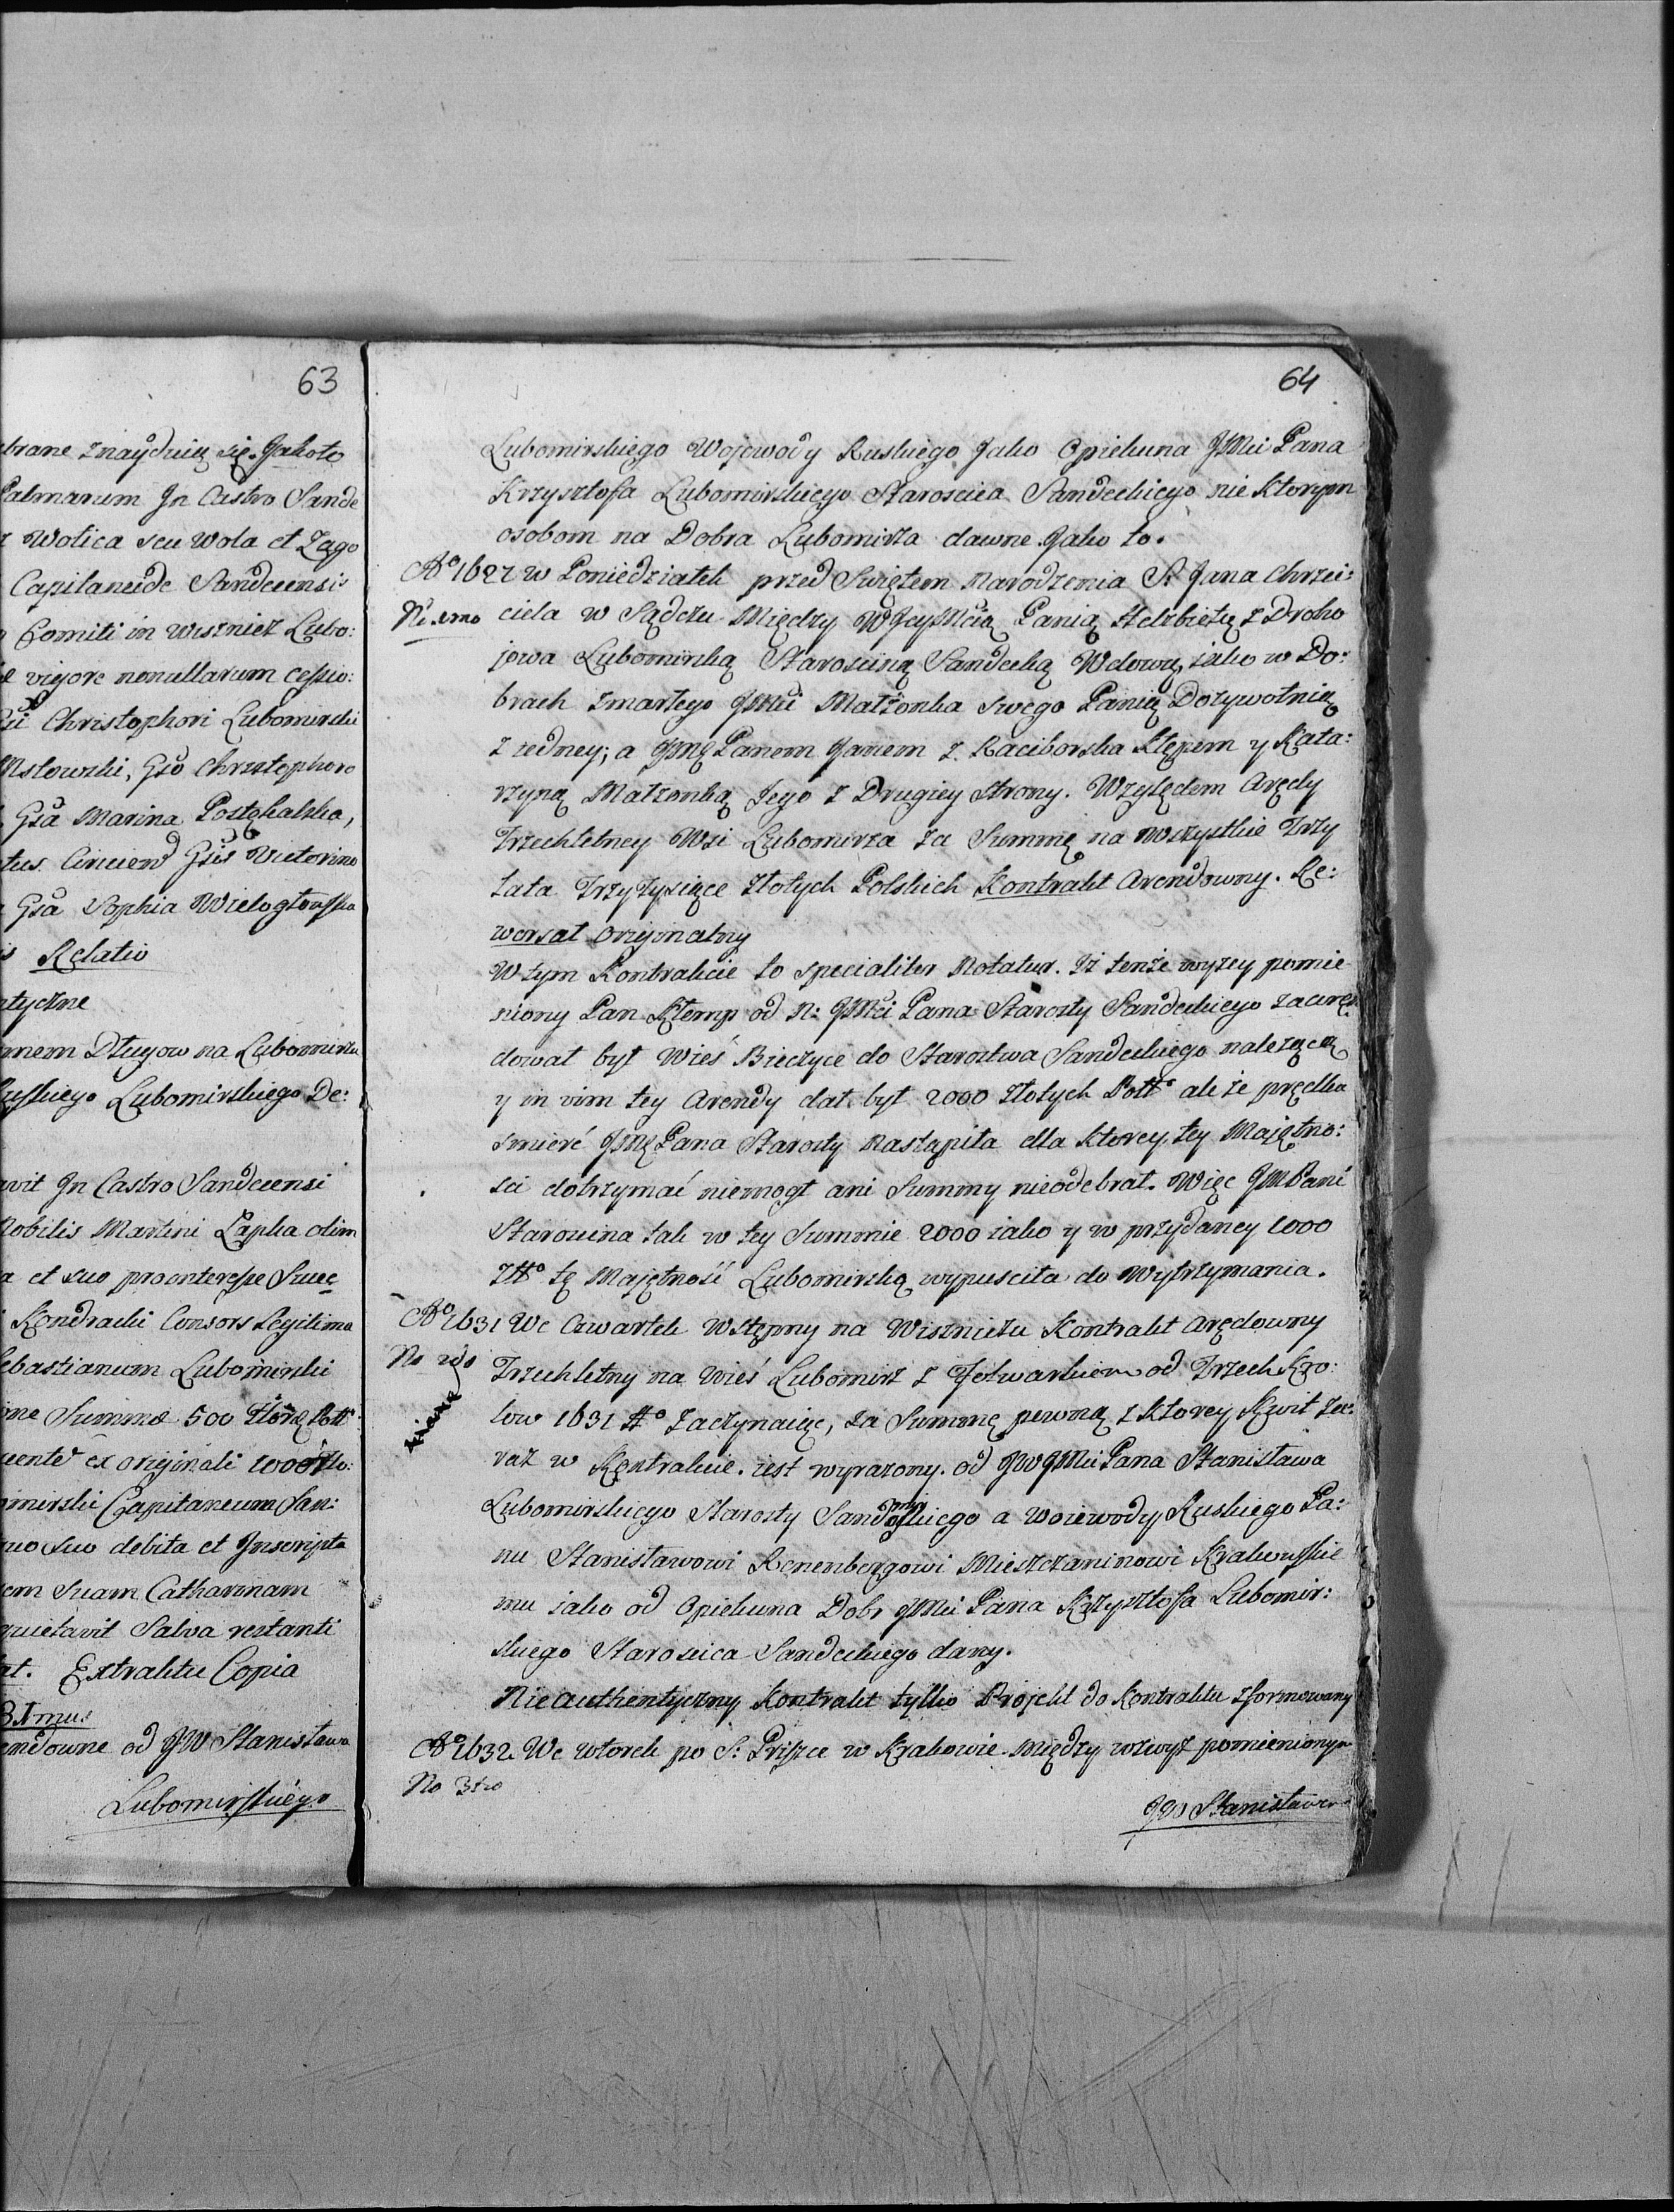 63
brane znayduią się. Jakoto
Palmarum Jn Castro Sande
z Wolica seu Wola et Zago
Capitaneide Sandecensis
Comiti in Wisznicz Lubo:
vigore nonullarum cessio:
Christophori Lubomirski
Msłowski, Gso Chrzstophoro
Gsa Marina Postękalska,
Gsis Victorino
Gsa Sophia Wielogłowska
Relatio
ntyczne
mem Długow na Lubomirzu
Ruskiego Lubomirskiego De:
avit Jn Castro Sandecensi
Nobilis Martini Łapka olim
a et suo prointeresse Suae
Kondracki Consors Legitima
Sebastianum Lubomirski
Summa 500 Polł
ex originali 1000
omirski Capitaneum San:
quo Suo debita et Jnscripta
em Suam Catharinam
quietavit Salva restanti
at. Extraktu Copia
3tmus
endowne od JW Stanisława
Lubomirskiego
64
Lubomirskiego Wojewody Ruskiego Jako Opiekuna JMci Pana
Krzysztofa Lubomirskiego Starościca Sandeckiego nie ktorym
osobom na Dobra Lubomirza dawne Jako to.
Ao 1627 w Poniedziałek przed Swiętem Narodzenia S. Jana Chrzci:
No 1mo ciela w Sądczu Między WJeyMcią Panią Helżbietą z Droho
jowa Lubomirską Starościną Sandecką Wdową jako w Do:
brach zmarłego JMci Małżonka Swego Panią Dożywotnią
z iedney; a JMę Panem Janem z Raciborska Stępem y Kata:
rzyną Małżonką Jego z Drugiey Strony. Względem Arędy
Trzechletney Wsi Lubomirza za Summę na wszystkie Trzy
Lata Trzy Tysiące Złotych Polskich Kontrakt Arendowny. Re:
wersał originalny
W tym Kontrakcie to specialiter Notatur. Iż tenże wyzey pomie
niony Pan Stemp od N: JMci Pana Starosty Sandeckiego zaaręn
dował był Wieś Bieczyce do Starostwa Sandeckiego należącą
y in vim tey Arendy dał był 2000 Złotych Polło ale że prędka
śmierć JMę Pana Starosty nastąpiła dla ktorey tey Majętno:
ści dotrzymać niemogł ani Summy nieodebrał. Więc JM Pani
Starościna tak w tey Summie 2000 iako y w przydaney 1000
Złło tę Majętność Lubomirską wypuściła do Wytrzymania.
Ao 1631 We Czwartek Wstępny na Wiszniczu Kontrakt Arędowny
No 2do Trzechletny na Wieś Lubomirz z Folwarkiem od Trzech Kro:
low 1631 Ao zaczynaiąc, za Summę pewną z ktorey Kwit za:
raz w Kontrakcie iest wyrażony. od JWJMci Pana Stanisława
Lubomirskiego Starosty Sandomirskiego a Woiewody Ruskiego Pa:
nu Stanisławowi Renenbergowi Mieszczaninowi Krakowskie
mu iako od Opiekuna Dobr JMci Pana Krzysztofa Lubomir:
skiego Starościca Sandeckiego dany.
Nieauthentyczny Kontrakt tylko Projekt do Kontraktu zformowany
Ao 1632 We Wtorek po S: Prisce w Krakowie. Między wzwyż pomienionym
No 3tio
JWo Stanisławem